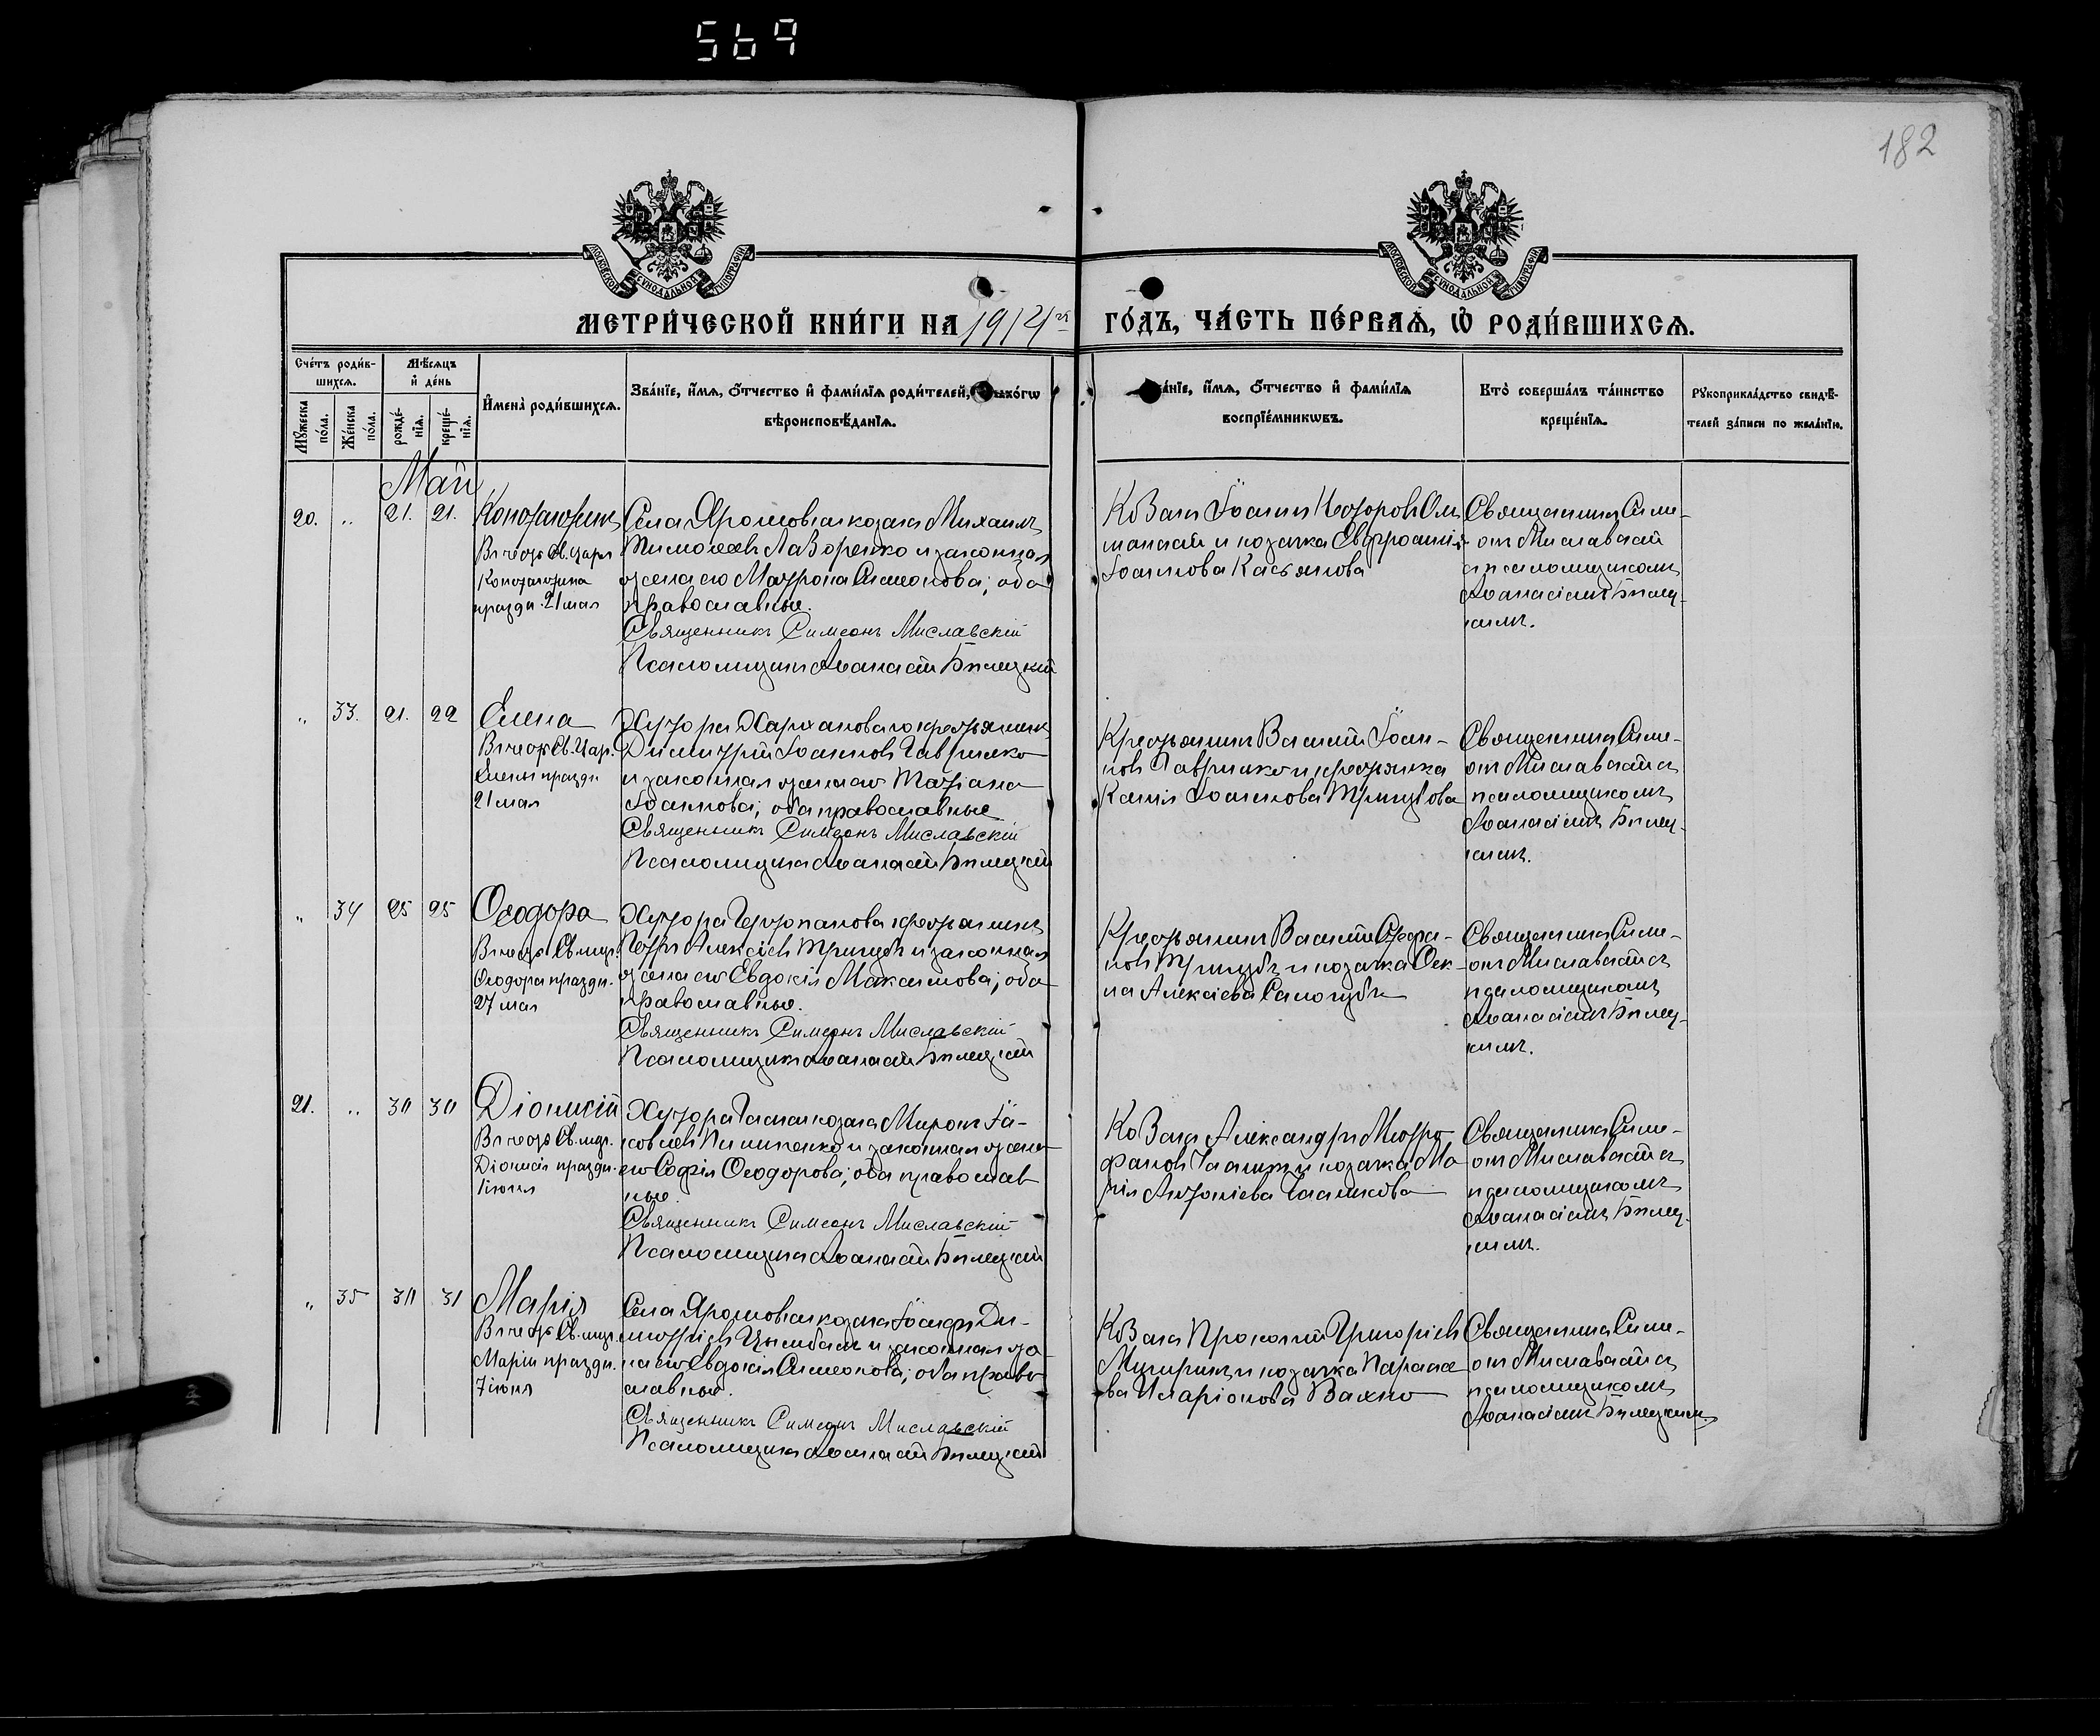 569
182
МОСКОВСКОЙ СУНОДАЛЬНОЙ ТИПОГРАФІИ
МОСКОВСКОЙ СУНОДАЛЬНОЙ ТИПОГРАФІИ
МЕТРИ́ЧЕСКОЙ КНИ́ГИ НА 1914 го́дъ, ЧА́СТЬ ПЕ́РВАѦ, Ѡ РОДИ́ВШИХСѦ.
Сче́тъ роди́в-
шихсѧ.
Мѣ́сѧцъ
и҆ де́нь
Мꙋ́жеска по́ла.
Же́нска по́ла.
рожде́-
нїѧ.
креще́-
нїѧ.
И҆мена̀ роди́вшихсѧ.
Зва́нїе, и҆́мѧ, ѻ҆́тчество и҆ фами́лїѧ роди́телей,
вѣроисповѣ́данїѧ.
и҆́мѧ, ѻ҆́тчество и҆ фами́лїѧ
воспрїе́мникѡвъ.
Кто̀ соверша́лъ та́инство
креще́нїѧ.
Рꙋкоприкла́дство свидѣ́-
телей за́писи по жела́нїю.
Май
20. " 21. 21. Константинъ
В честь Св. Царя
Константина
праздн. 21 мая
Села Ярошовки козакъ Михаилъ
Тимофеевъ Лазоренко и законная
жена его Матрона Симеонова; оба
православные.
Священникъ Симеонъ Миславскій
Псаломщикъ Аѳанасій Билецкій
Козакъ Іоаннъ
и козачка Евфросинія
Іоаннова Касьянова
Священникъ Симе-
онъ Миславскій
съ псаломщикомъ
Аѳанасіемъ Билец-
кимъ.
" 33. 21. 22 Елена
В честь Св. Цар.
Елены праздн.
21 мая
Хутора крестьянинъ
Димитрій Іоанновъ Гавриленко
и законная жена его Татіана
Іоаннова; оба православные
Священникъ Симеонъ Миславскій
Псаломщикъ Аѳанасій Билецкій
Крестьянинъ Василій Іоан-
новъ и крестьянка
Ксенія Іоаннова Тригубова
Священникъ Симе-
онъ Миславскій съ
псаломщикомъ
Аѳанасіемъ Билец-
кимъ.
" 34 25 25 Ѳеодора
В честь Св. мцр.
Ѳеодоры праздн.
27 мая
Хутора крестьянинъ
Петръ Алексіевъ Тригубъ и законная
жена его Евдокія Максимова; оба
православные.
Священникъ Симеонъ Миславскій
Псаломщикъ Аѳанасій Билецкій
Крестьянинъ Василій Стефа-
новъ Тригубъ и козачка Ѳек-
ла Алексіева Салогубъ
Священникъ Симе-
онъ Миславскій съ
псаломщикомъ
Аѳанасіемъ Билец-
кимъ.
21. " 30 30 Діонисій
В честь Св. мцр.
Діонисія праздн.
1 іюня
Хутора козакъ Миронъ Іа-
ковлевъ и законная жена
его Софія Ѳеодорова; оба православ
ные.
Священникъ Симеонъ Миславскій
Псаломщикъ Аѳанасій Билецкій
Козакъ Александръ Митро-
фановъ и козачка Ма
рія Антоніева
Священникъ Симе-
онъ Миславскій съ
псаломщикомъ
Аѳанасіемъ Билец-
кимъ.
" 35 30 31 Марія
В честь Св. мцр.
Маріи праздн.
7 іюня
Села Ярошовки козакъ Іосифъ Ди-
митріевъ Цымбалъ и законная же-
на его Евдокія Симеонова; оба право
славные.
Священникъ Симеонъ Миславскій
Псаломщикъ Аѳанасій Билецкій
Козакъ Прокопій Григоріевъ
и козачка Параске
ва Иларіонова Вахно
Священникъ Симе-
онъ Миславскій съ
псаломщикомъ
Аѳанасіемъ Билецкимъ.